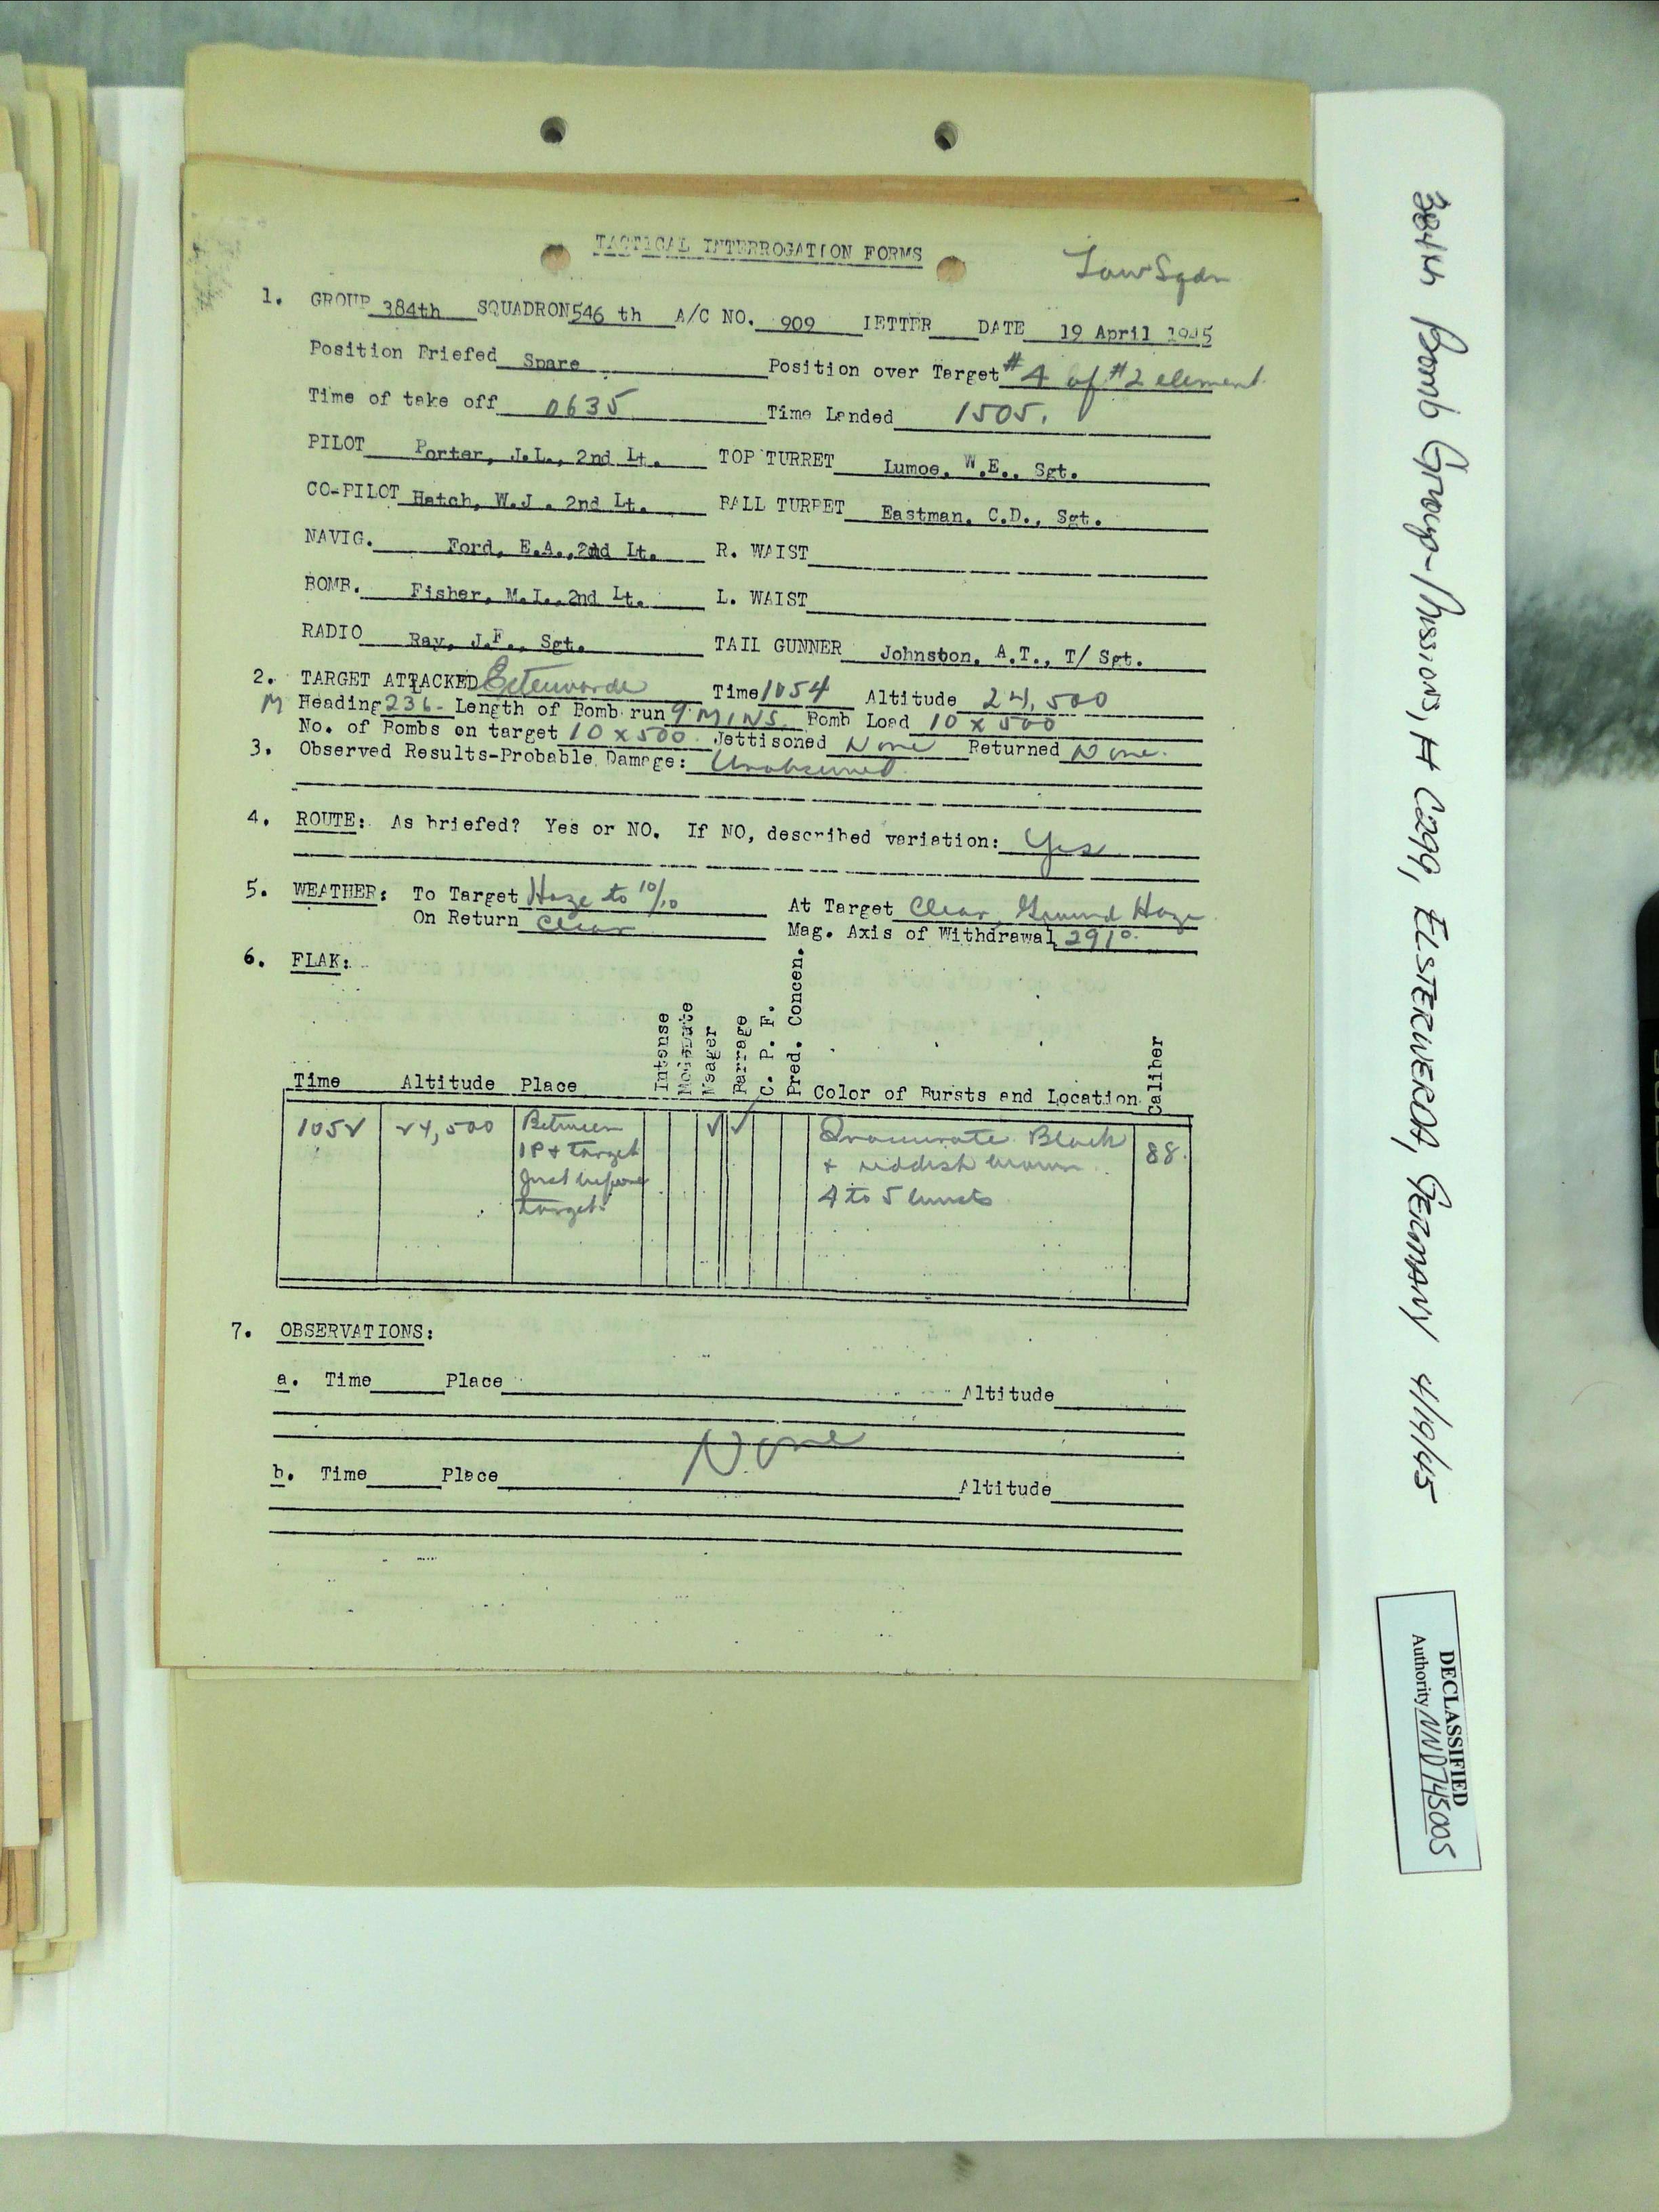 TACTICAL INTERROGATION FORMS
Low Sqdn
1. GROUP 384th SQUADRON 546 th A/C NO. 909 LETTER DATE 19 April 1945
Position Briefed Spare Position over Target #4 of #2 element
Time of take off 0635 Time Landed 1505.
PILOT Porter, J.L., 2nd Lt. TOP TURRET Lumoe, W.E., Sgt.
CO-PILOT Hatch, W.J. 2nd Lt. BALL TURRET Eastman, C.D., Sgt.
NAVIG. Ford, E.A., 2nd Lt. R. WAIST
BOMB. Fisher, M.I., 2nd Lt. L. WAIST
RADIO Ray, J.F., Sgt. TAIL GUNNER Johnston, A.T., T/ Sgt.
2. TARGET ATTACKED Time 1054 Altitude 24,500
M Heading 236- Length of Bomb run 9 MINS. Bomb Load 10 x 500
No. of Bombs on target 10 x 500. Jettisoned None Returned None.
3. Observed Results-Probable Damage: Unobserved.
4. ROUTE: As briefed? Yes or NO. If NO, described variation: Yes
5. WEATHER: To Target Haze to 10/10 At Target Clear, Ground Haze
On Return Clear Mag. Axis of Withdrawal 291°.
6. FLAK:
Time Altitude Place Intense Moderate Meager Barrage C. P. F. Pred. Concen. Color of Bursts and Location Caliber
1052 24,500 Between Inaccurate Black 88.
IP + Target + reddish brown
Just before 4 to 5 bursts
target.
7. OBSERVATIONS:
a. Time Place Altitude
None
b. Time Place Altitude
384th Bomb Group-Mission, # C299, ELSTERWERDA, GERMANY 4/19/45
DECLASSIFIED
Authority NND745005